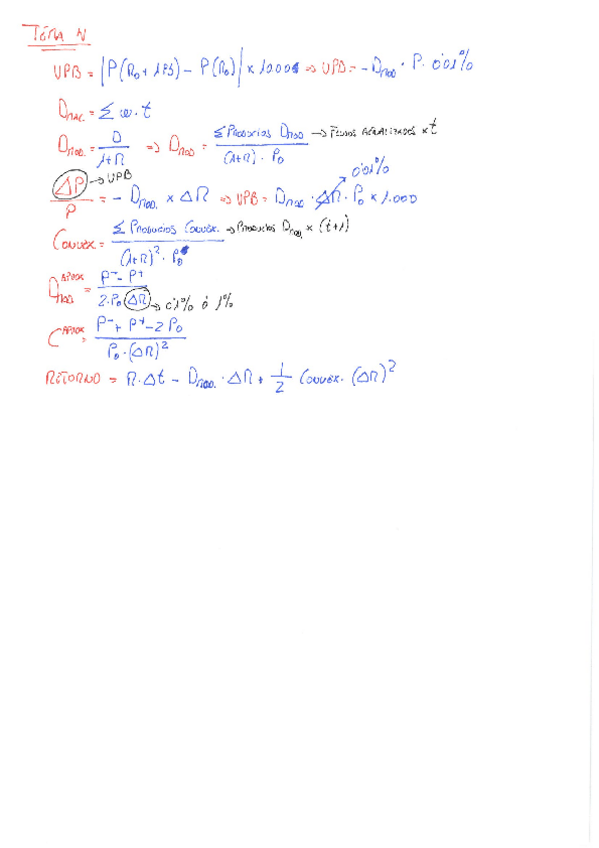 TEMA N
VPB = |P(R₀ + 1PB) - P(R₀)| × 10000 ⇒ VPB = - Dmod · P · 0'01%
Dmac. = Σ w · t
Dmod. = D / (1+R) ⇒ Dmod = Σ Productos Dmod / ((1+R) · P₀) → Flujos actualizados × t
ΔP → VPB
ΔP / P = - Dmod. × ΔR ⇒ VPB = Dmod · ΔR · P₀ × 1.000
0'01%
Convex = Σ Productos Convex. / ((1+R)² · P₀) → Productos Dmod. × (t+1)
Dmod aprox = (P⁻ - P⁺) / (2·P₀ ΔR) → 0'1% ó 1%
C aprox = (P⁻ + P⁺ - 2P₀) / (P₀ · (ΔR)²)
RETORNO = R · Δt - Dmod. · ΔR + 1/2 Convex. (ΔR)²